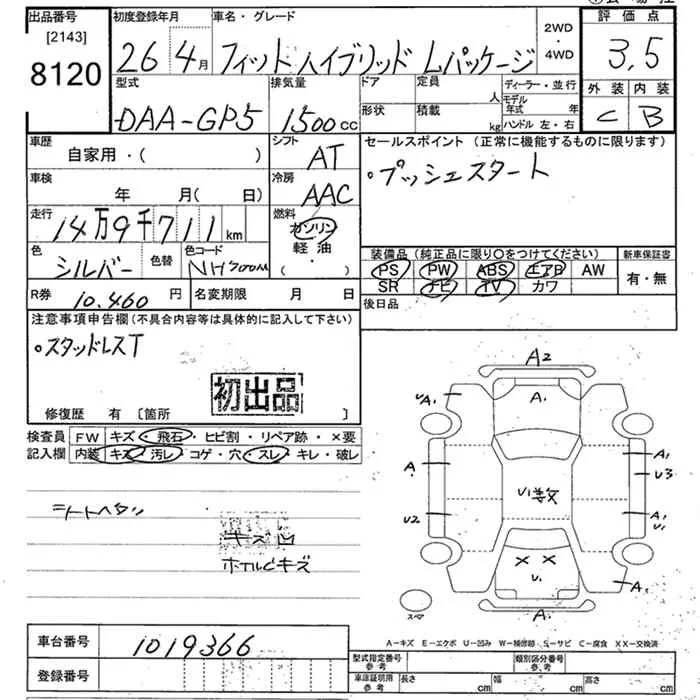 出品番号
[2143]
8120
初度登録年月
26年 4月
車名・グレード
フィットハイブリッド Lパッケージ
2WD
・
4WD
評価点
3.5
外装 内装
C B
型式
DAA-GP5
排気量
1500cc
ドア
定員
人
形状
積載
kg
ディーラー・並行
モデル年式 年
ハンドル 左・右
車歴
自家用・( )
シフト
AT
車検
年 月( 日)
冷房
AAC
走行
14万9千711km
燃料
ガソリン
軽油
( )
色
シルバー
色替
色コード
NH700M
R券
10.460 円
名変期限 月 日
セールスポイント (正常に機能するものに限ります)
・プッシュスタート
装備品 (純正品に限り○をつけてください)
PS PW ABS エアB AW
SR ナビ TV カワ
新車保証書
有・無
後日品
注意事項申告欄 (不具合内容等は具体的に記入して下さい)
・スタッドレスT
初出品
修復歴 有 [箇所 ]
検査員記入欄
FW キズ・飛石・ヒビ割・リペア跡・×要
内装 キズ・汚レ・コゲ・穴・スレ・キレ・破レ
シートヘタリ
キズ凹
ホイルCキズ
A2
A1
UA1
A
U2
U1数
A1
U3
A1
U1
× ×
U1
A1
A1
スペア
A-キズ E-エクボ U-凹み W-補修跡 S-サビ C-腐食 XX-交換済
車台番号
1019366
登録番号
型式指定番号
参考
類別区分番号
参考
車庫証明用
参考
長さ cm 幅 cm 高さ cm